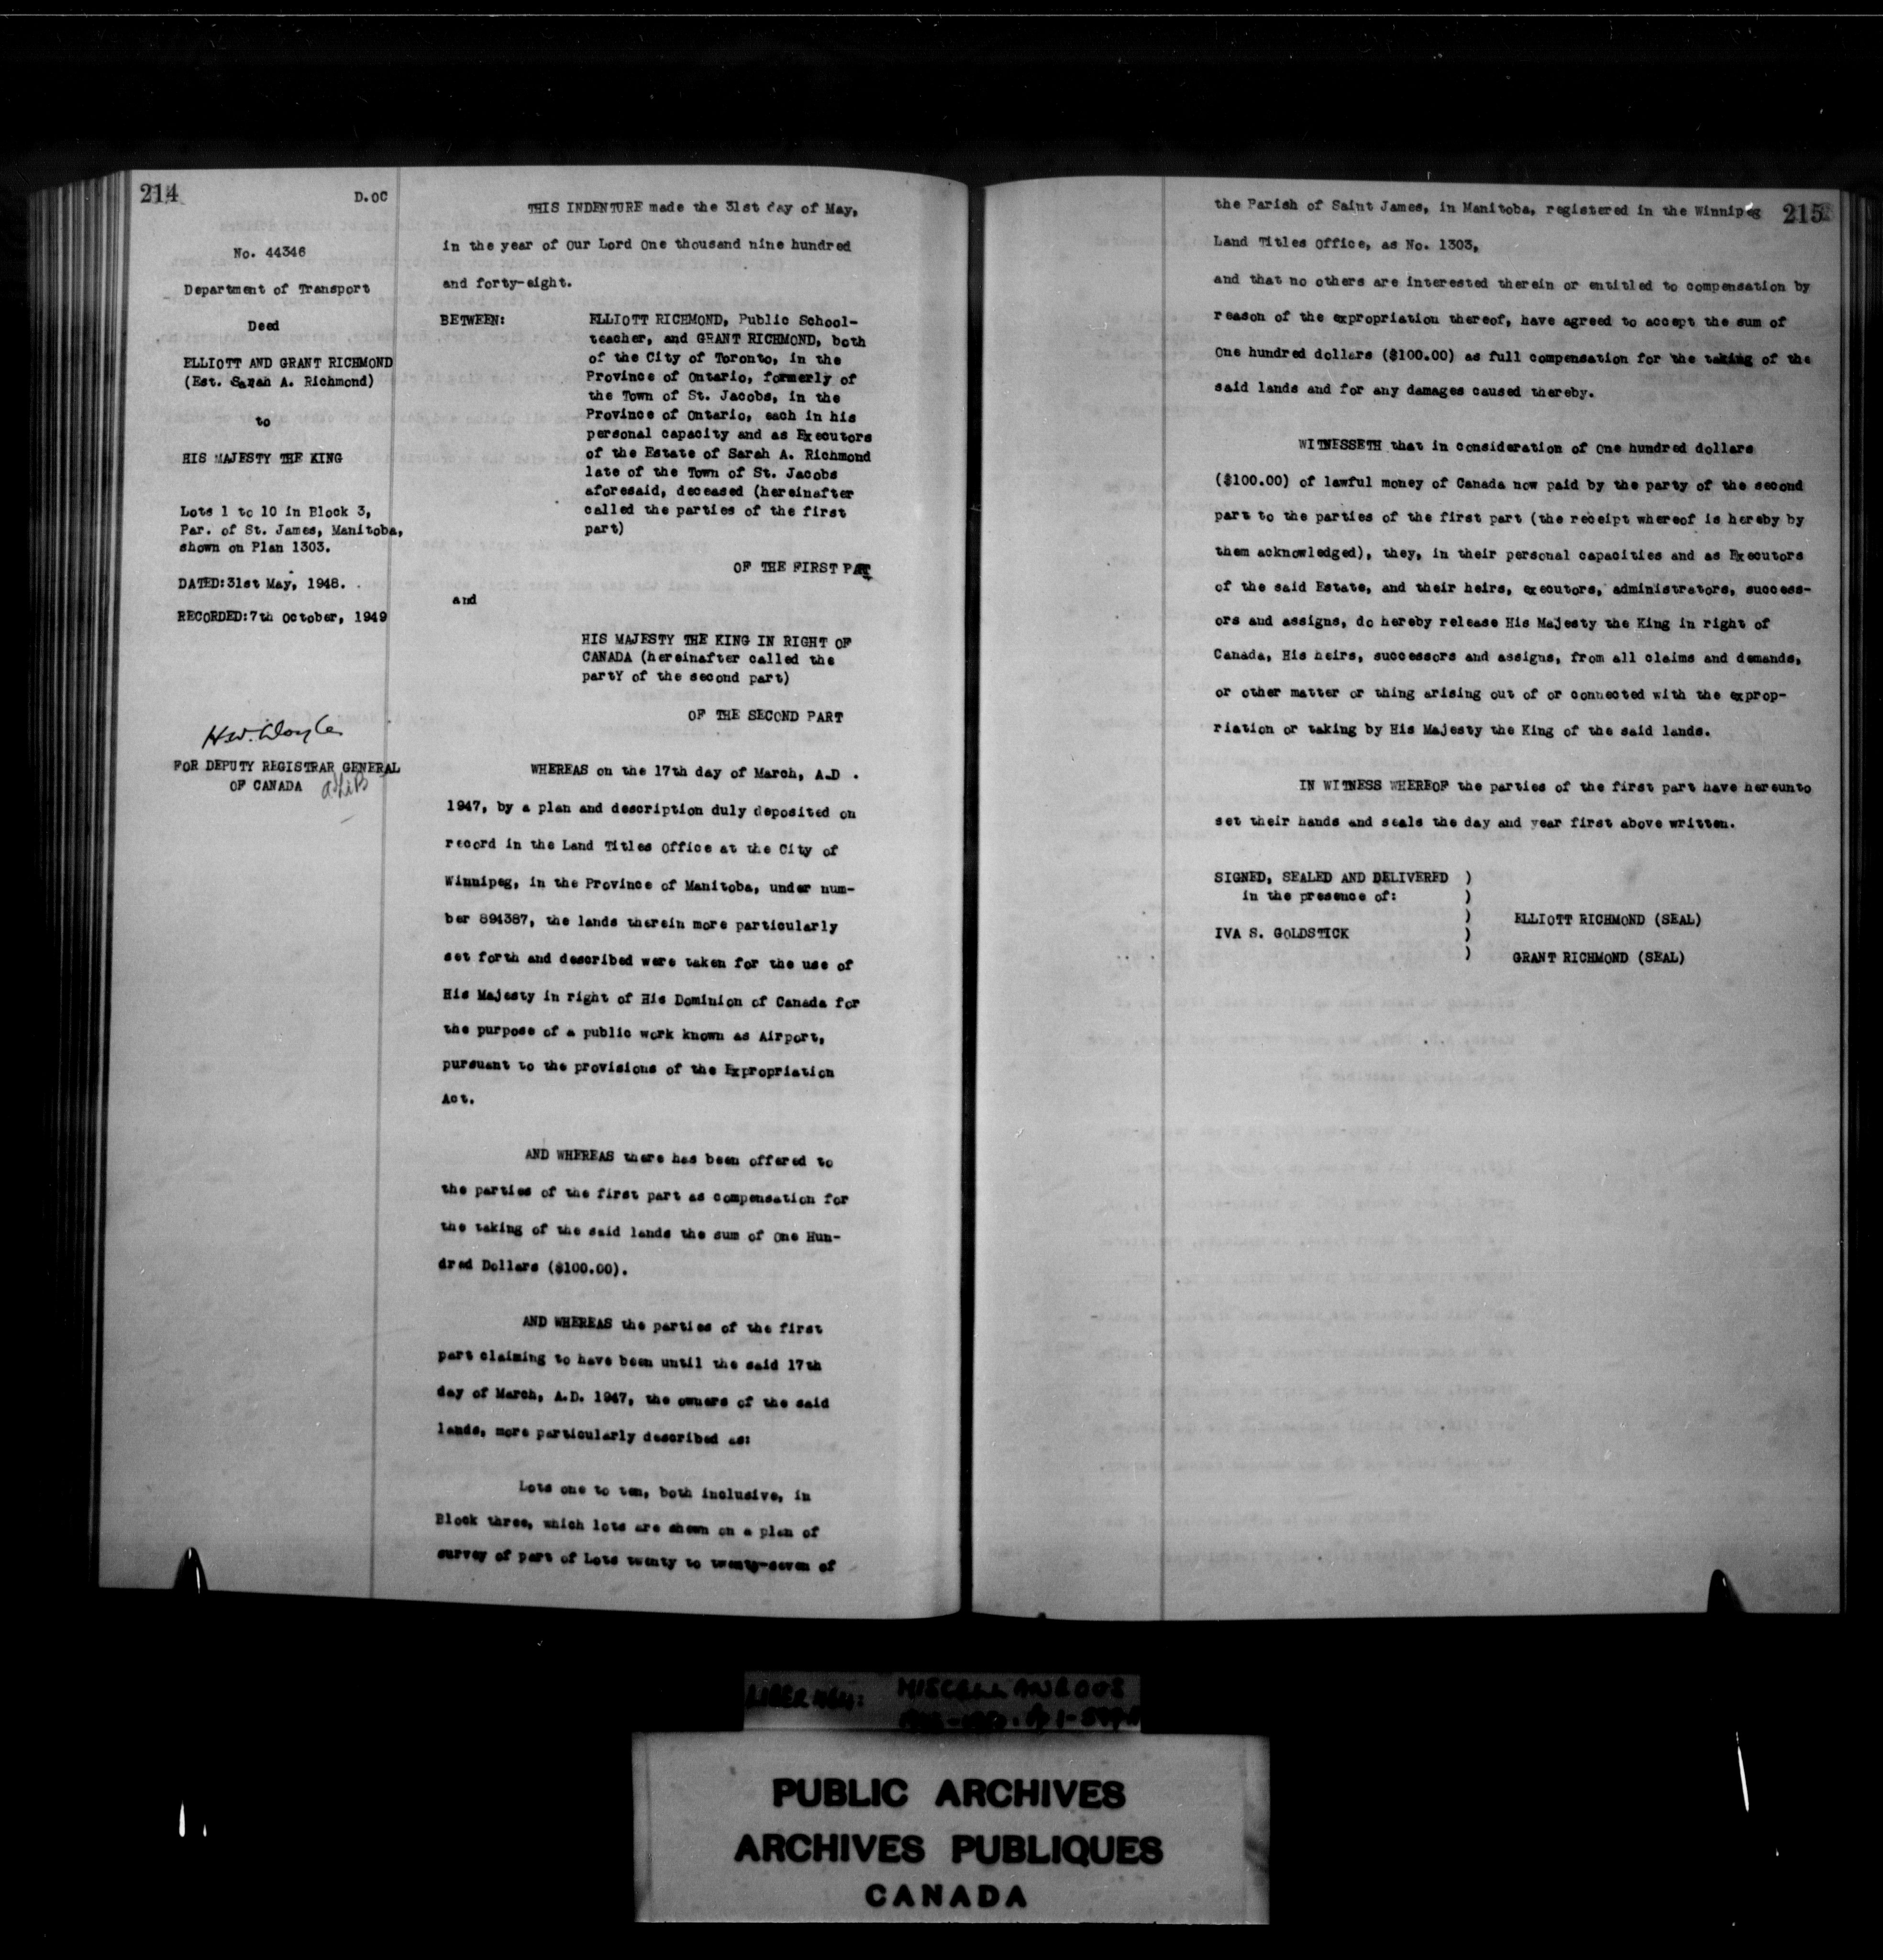 214
D.OC
No. 44346
Department of Transport
Deed
ELLIOTT AND GRANT RICHMOND
(Est. Sarah A. Richmond)
to
HIS MAJESTY THE KING
Lots 1 to 10 in Block 3,
Par. of St. James, Manitoba,
shown on Plan 1303.
DATED:31st May, 1948.
RECORDED:7th October, 1949
H.W. Doyle
FOR DEPUTY REGISTRAR GENERAL
OF CANADA
THIS INDENTURE made the 31st day of May,
in the year of Our Lord One thousand nine hundred
and forty-eight.
BETWEEN: ELLIOTT RICHMOND, Public School-
teacher, and GRANT RICHMOND, both
of the City of Toronto, in the
Province of Ontario, formerly of
the Town of St. Jacobs, in the
Province of Ontario, each in his
personal capacity and as Executors
of the Estate of Sarah A. Richmond
late of the Town of St. Jacobs
aforesaid, deceased (hereinafter
called the parties of the first
part)
OF THE FIRST PART
and
HIS MAJESTY THE KING IN RIGHT OF
CANADA (hereinafter called the
partY of the second part)
OF THE SECOND PART
WHEREAS on the 17th day of March, A.D .
1947, by a plan and description duly deposited on
record in the Land Titles Office at the City of
Winnipeg, in the Province of Manitoba, under num-
ber 894387, the lands therein more particularly
set forth and described were taken for the use of
His Majesty in right of His Dominion of Canada for
the purpose of a public work known as Airport,
pursuant to the provisions of the Expropriation
Act.
AND WHEREAS there has been offered to
the parties of the first part as compensation for
the taking of the said lands the sum of One Hun-
dred Dollars ($100.00).
AND WHEREAS the parties of the first
part claiming to have been until the said 17th
day of March, A.D. 1947, the owners of the said
lands, more particularly described as:
Lots one to ten, both inclusive, in
Block three, which lots are shown on a plan of
survey of part of Lots twenty to twenty-seven of
215
the Parish of Saint James, in Manitoba, registered in the Winnipeg
Land Titles Office, as No. 1303,
and that no others are interested therein or entitled to compensation by
reason of the expropriation thereof, have agreed to accept the sum of
One hundred dollars ($100.00) as full compensation for the taking of the
said lands and for any damages caused thereby.
WITNESSETH that in consideration of One hundred dollars
($100.00) of lawful money of Canada now paid by the party of the second
part to the parties of the first part (the receipt whereof is hereby by
them acknowledged), they, in their personal capacities and as Executors
of the said Estate, and their heirs, executors, administrators, success-
ors and assigns, do hereby release His Majesty the King in right of
Canada, His heirs, successors and assigns, from all claims and demands,
or other matter or thing arising out of or connected with the exprop-
riation or taking by His Majesty the King of the said lands.
IN WITNESS WHEREOF the parties of the first part have hereunto
set their hands and seals the day and year first above written.
SIGNED, SEALED AND DELIVERED )
in the presence of: )
) ELLIOTT RICHMOND (SEAL)
IVA S. GOLDSTICK )
) GRANT RICHMOND (SEAL)
LIBER 464: MISCELLANEOUS
PUBLIC ARCHIVES
ARCHIVES PUBLIQUES
CANADA